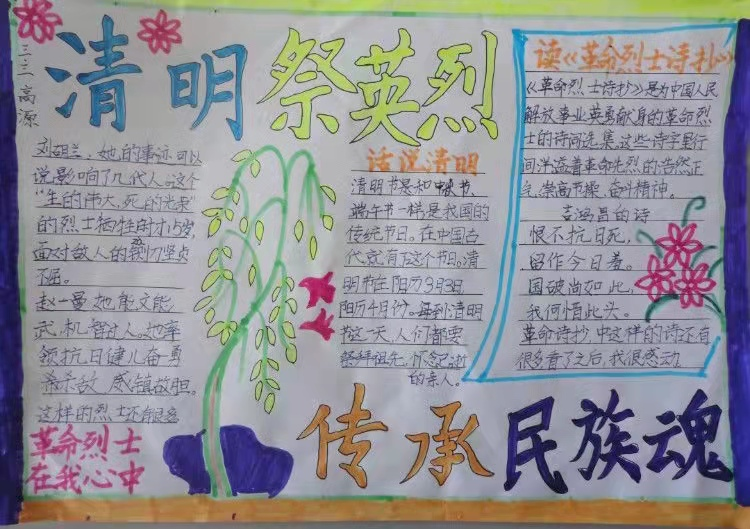 三.三 高源
清明祭英烈
刘胡兰，她的事迹可以
说影响了几代人。这个
“生的伟大，死的光荣”
的烈士牺牲时才15岁
面对敌人的铡刀坚贞
不屈。
赵一曼她能文能
武，机智过人。她率
领抗日健儿奋勇
杀敌，威镇敌胆。
这样的烈士还有很多
革命烈士
在我心中
话说清明
清明节是和中秋节、
端午节一样是我国的
传统节日。在中国古
代就有了这个节日。清
明节在阳历3月3日
阳历4月份。每到清明
节这一天，人们都要
祭拜祖先，怀念逝
的亲人。
读《革命烈士诗抄》
《革命烈士诗抄》是为中国人民
解放事业英勇献身的革命烈
士的诗词选集，这些诗字里行
间洋溢着革命先烈的浩然正
气，崇高节操，奋斗精神。
吉鸿昌的诗
恨不抗日死，
留作今日羞。
国破尚如此，
我何惜此头。
革命诗抄中这样的诗还有
很多看了之后，我很感动
传承民族魂